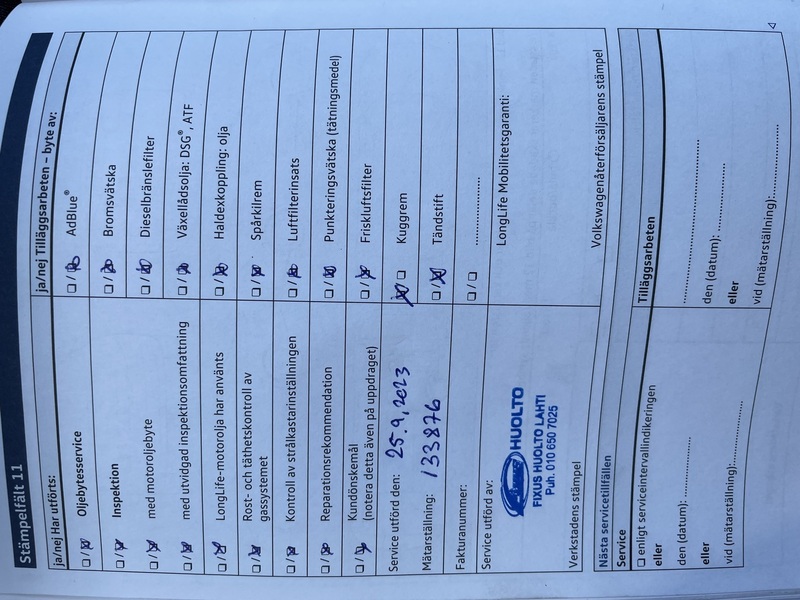 Stämpelfält 11
ja/nej Har utförts:
☐ / ☒ Oljebytesservice
☐ / ☒ Inspektion
☐ / ☒ med motoroljebyte
☐ / ☒ med utvidgad inspektionsomfattning
☐ / ☒ LongLife-motorolja har använts
☐ / ☒ Rost- och täthetskontroll av
gassystemet
☐ / ☒ Kontroll av strålkastarinställningen
☐ / ☒ Reparationsrekommendation
☐ / ☒ Kundönskemål
(notera detta även på uppdraget)
Service utförd den: 25.9.2023
Mätarställning: 133876
Fakturanummer:
Service utförd av:
HUOLTO
FIXUS HUOLTO LAHTI
Puh. 010 650 7025
Verkstadens stämpel
ja/nej Tilläggsarbeten – byte av:
☐ / ☒ AdBlue®
☐ / ☒ Bromsvätska
☐ / ☒ Dieselbränslefilter
☐ / ☒ Växellådsolja: DSG®, ATF
☐ / ☒ Haldexkoppling: olja
☐ / ☒ Spårkilrem
☐ / ☒ Luftfilterinsats
☐ / ☒ Punkteringsvätska (tätningsmedel)
☐ / ☒ Friskluftsfilter
☒ ☐ Kuggrem
☐ / ☒ Tändstift
☐ / ☐ ....................
LongLife Mobilitetsgaranti:
Volkswagenåterförsäljarens stämpel
Nästa servicetillfällen
Service
☐ enligt serviceintervallindikeringen
eller
den (datum): ....................
eller
vid (mätarställning):....................
Tilläggsarbeten
........................................
den (datum): ....................
eller
vid (mätarställning):....................